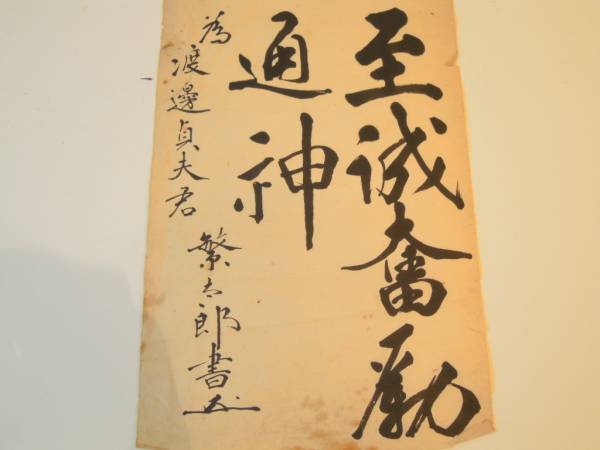 至誠奮勵
通神
為渡邊貞夫君
繁太郎書